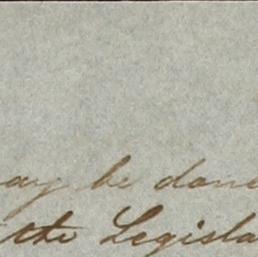 ay be done
the Legisla